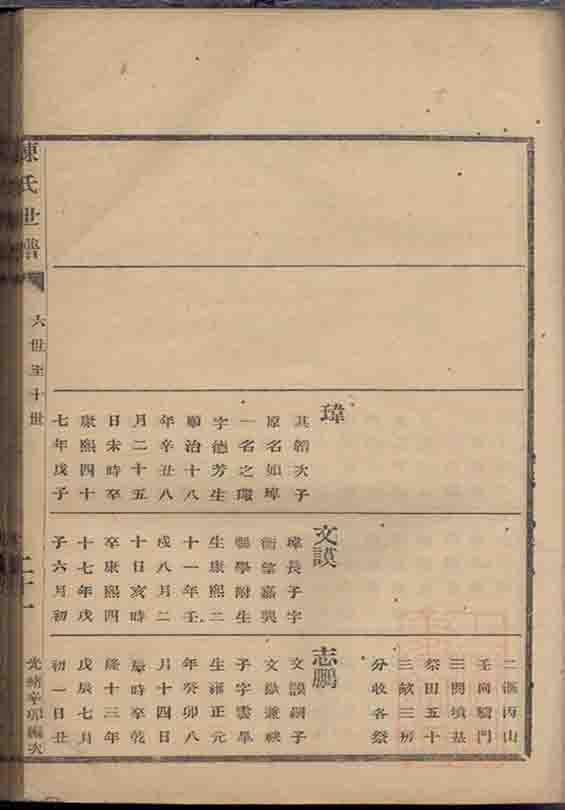 瑋
次子
原名如
一名之環
字德芳生
順治十八
年辛丑八
月二十五
日未時卒
康熙四十
七年戊子
文謨
瑋長子字
望嘉興
縣學附生
生康熙二
十一年壬
戌八月二
十日亥時
卒康熙四
十七年戊
子六月初
二 丙山
壬向 門
三間墳基
祭田五十
三畝三房
分收各祭
志鵬
文謨嗣子
文猷兼祧
子字雲
生雍正元
年癸卯八
月十四日
辰時卒乾
隆十三年
戊辰七月
初一日丑
陳氏世譜
六世至十世
光緒辛卯編次